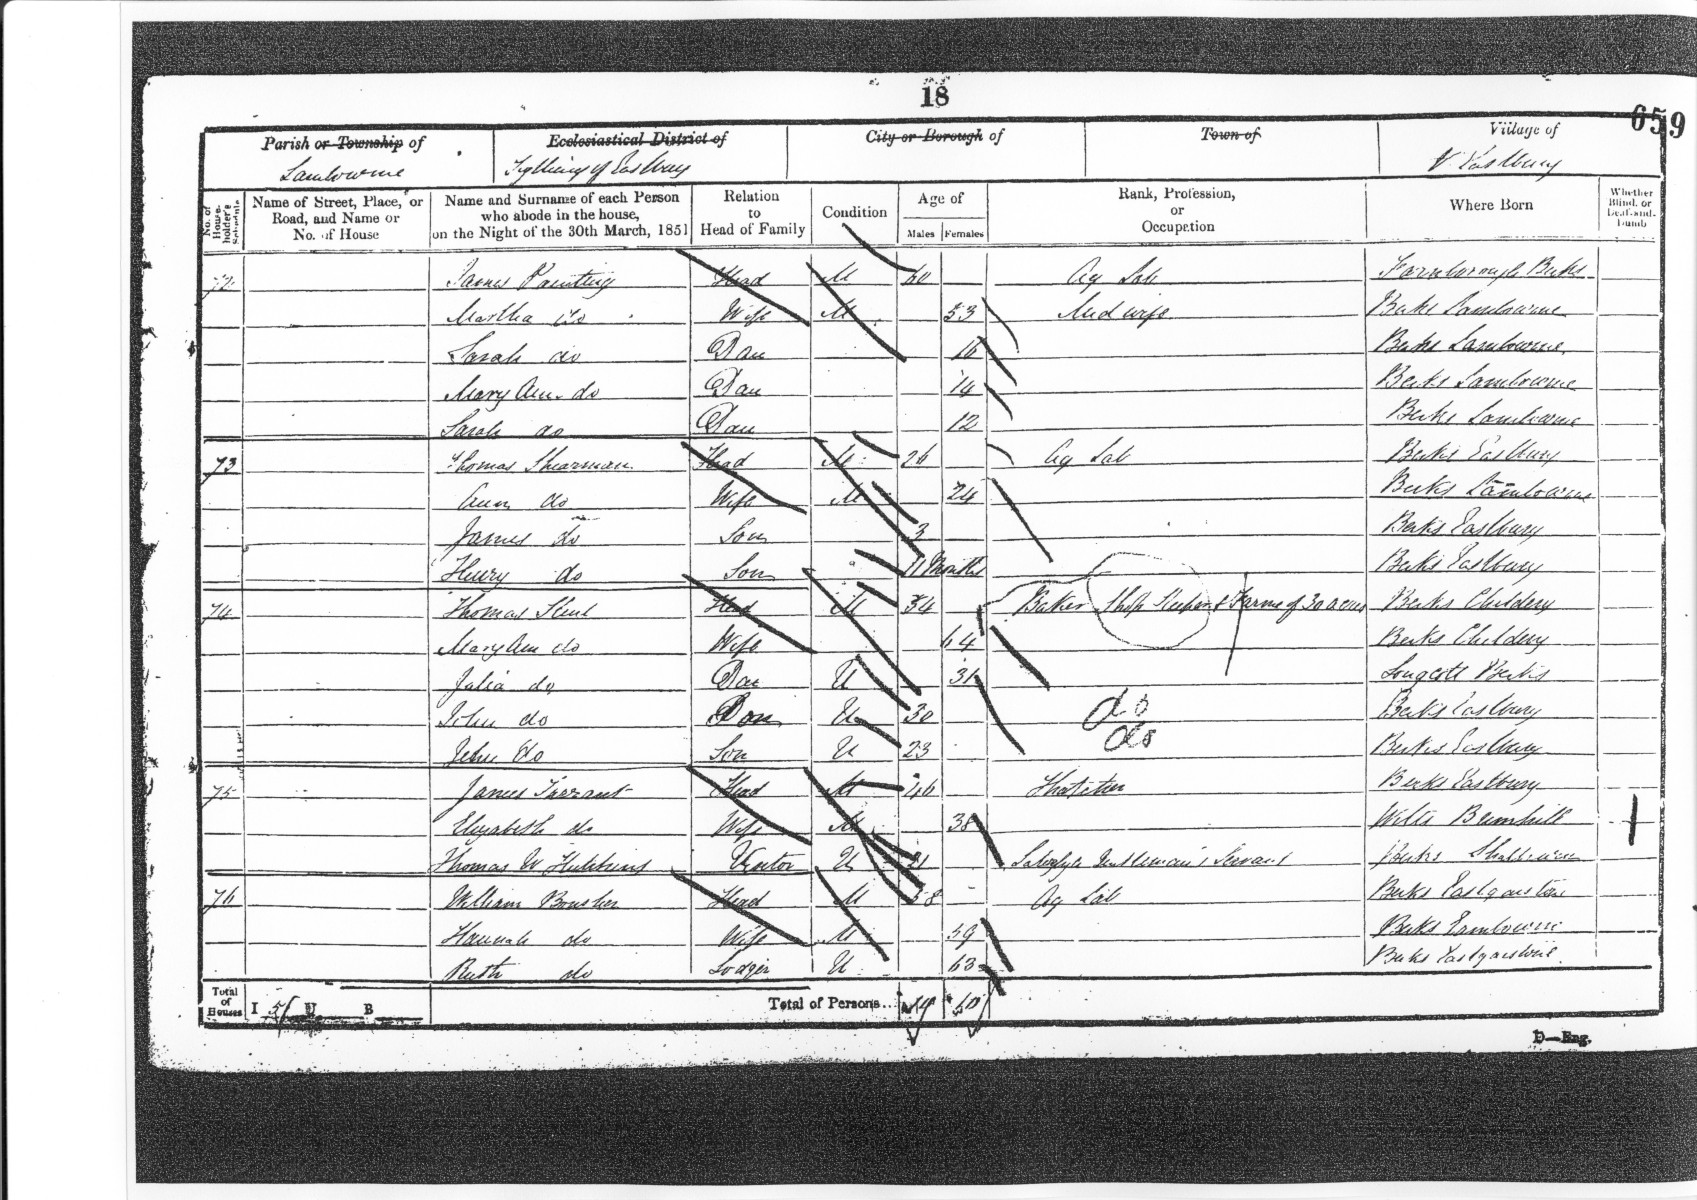 18
659
Parish or Township of
Ecclesiastical District of
City or Borough of
Town of
Village of
Lambourne
Tythiing of Eastbury
Eastbury
No. of House-holder's Schedule
Name of Street, Place, or Road, and Name or No. of House
Name and Surname of each Person who abode in the house, on the Night of the 30th March, 1851
Relation to Head of Family
Condition
Age of
Males Females
Rank, Profession, or Occupation
Where Born
Whether Blind, or Deaf-and-Dumb
72 James Painting Head M 60 Ag Lab Farnborough Berks
Martha do Wife M 53 Midwife Berks Lambourne
Sarah do Dau 16 Berks Lambourne
Mary Ann do Dau 14 Berks Lambourne
Sarah do Dau 12 Berks Lambourne
73 Thomas Shearman Head M 26 Ag Lab Berks Eastbury
Ann do Wife M 24 Berks Lambourne
James do Son 3 Berks Eastbury
Henry do Son 11 Months Berks Eastbury
74 Thomas Head M 54 Baker Shop Keeper & Farms of 30 acres Berks Childery
Mary Ann do Wife 64 Berks Childery
Julia do Dau U 31 Longcott Berks
John do Son U 30 do Berks Eastbury
John do Son U 23 do Berks Eastbury
75 James Tarrant Head M 46 Thatcher Berks Eastbury
Elizabeth do Wife M 38 Wilts
Thomas W Visitor U 21 Gentleman's Servant Berks
76 William Head M 58 Ag Lab Berks Eastgarston
Hannah do Wife M 59 Berks Lambourne
Ruth do Lodger U 63 Berks
Total of Houses I 5 U B
Total of Persons... 10
D—Eng.